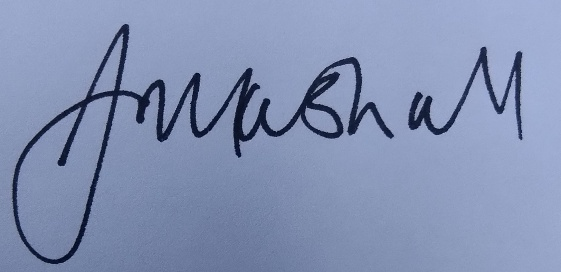 J Marshall